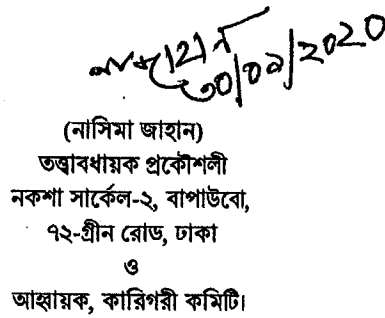 নাজাহান
৩০/০৯/২০২০
(নাসিমা জাহান)
তত্ত্বাবধায়ক প্রকৌশলী
নকশা সার্কেল-২, বাপাউবো,
৭২-গ্রীন রোড, ঢাকা
ও
আহ্বায়ক, কারিগরী কমিটি।